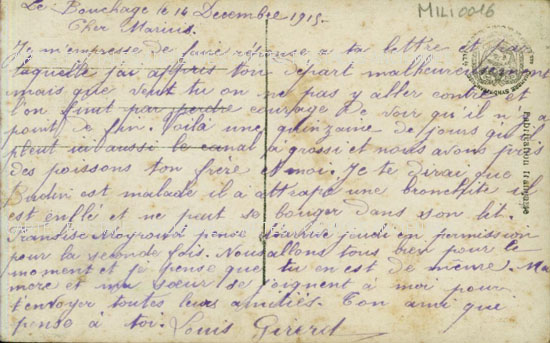 Le Bouchage le 14 Decembre 1915.
MILI0016
Cher Marius.
Je m'empresse de faire réponse a ta lettre et par
laquelle j'ai appris ton départ malheureusement
mais que veut tu on ne pas y aller contre et
l'on finit par perdre courage De voir qu'il n'y a
point de fin. Voilà une quinzaine de jours qu'il
pleut ici aussi le canal a grossi et nous avons pris
des poissons ton frère et moi. Je te dirai que
Budin est malade il à attrapé une bronchite il
est enflé et ne peut se bouger dans son lit.
Françise pense jeudi en permission
pour la seconde fois. Nous allons tous bien pour le
moment et je pense que tu en est de même. Ma
mere et ma sœur se joignent à moi pour
t'envoyer toutes leurs amitiés. Ton ami qui
pense à toi. Louis Girerd
Fabrication française